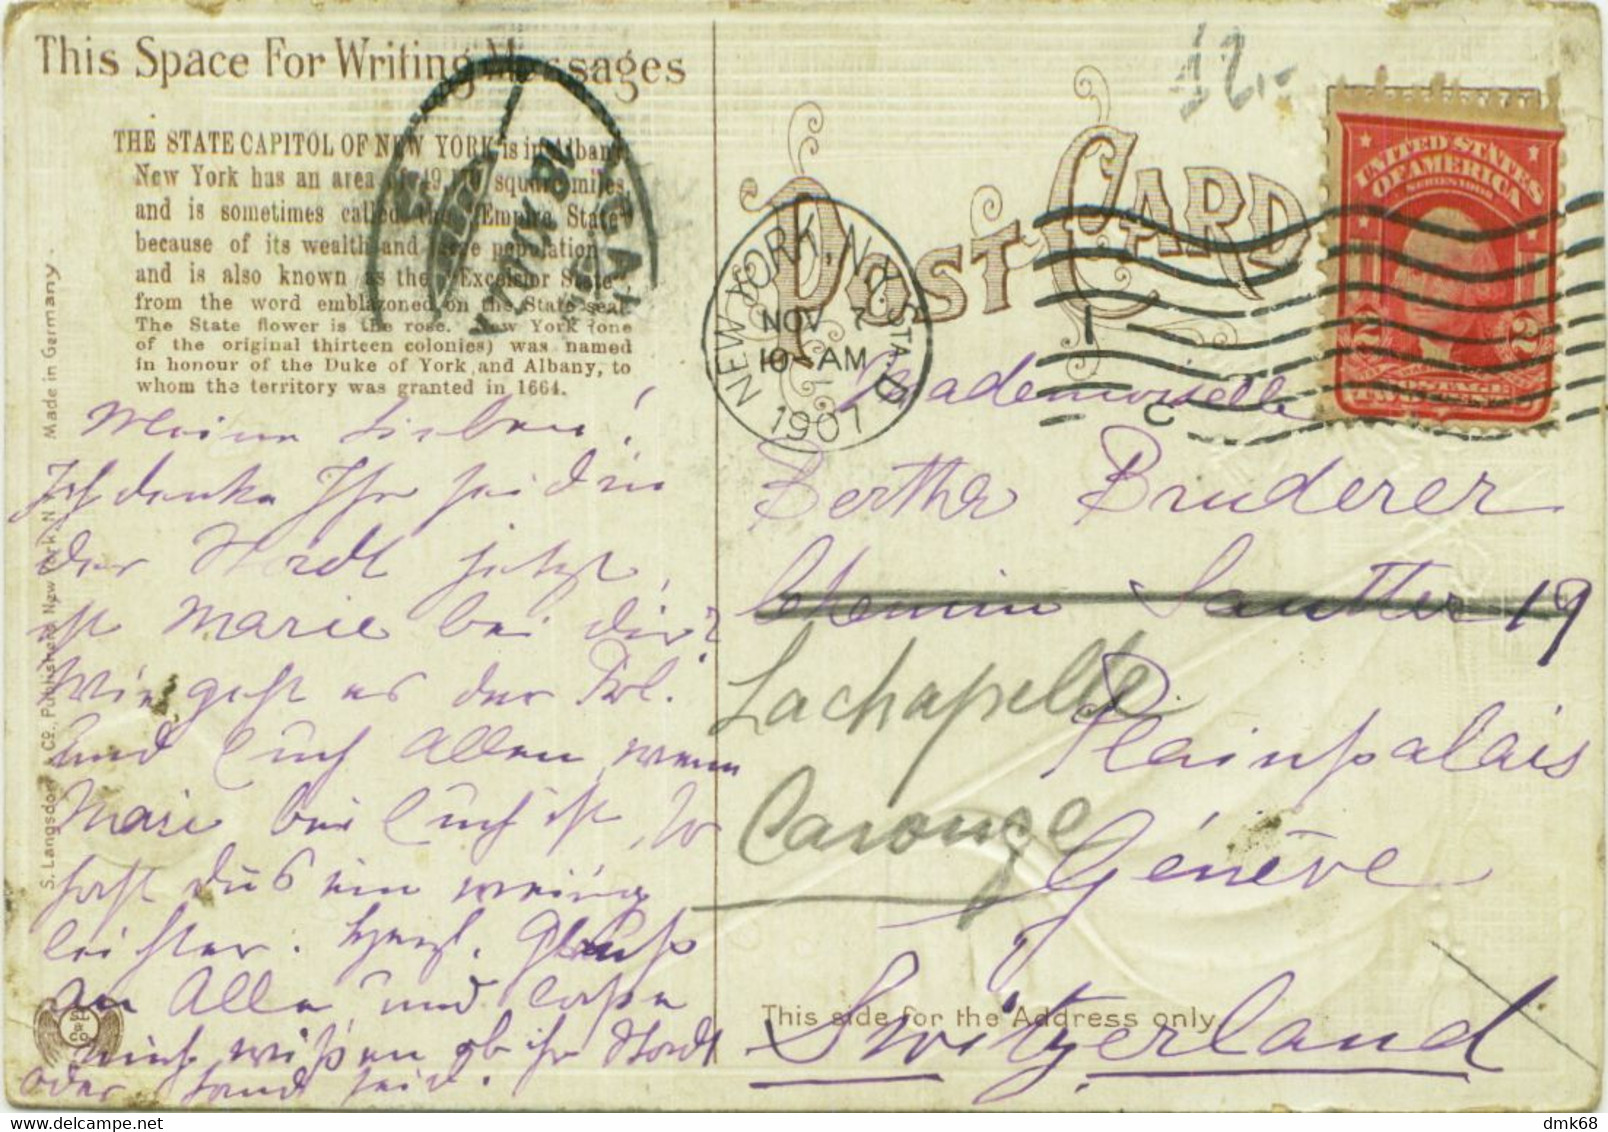 This Space For Writing Messages
THE STATE CAPITOL OF NEW YORK is in Albany
New York has an area of 49,170 square miles
and is sometimes called the "Empire State"
because of its wealth and large population
and is also known as the "Excelsior State",
from the word emblazoned on the State seal.
The State flower is the rose. New York (one
of the original thirteen colonies) was named
in honour of the Duke of York, and Albany, to
whom the territory was granted in 1664.
Meine Lieben!
Ich denke Ihr seid in
der Stadt jetzt,
ist Marie bei dir?
Wie geht es der Frl.
und Euch Allen, wenn
Marie bei Euch ist, so
hast du's ein wenig
leichter. Herzl. Gruss
an Alle und lasse
mich wissen ob ihr Stadt
oder Land seid.
S. Langsdorf & Co., Publishers, New York, N
Made in Germany.
12,-
POST CARD
NEW YORK, N.Y. STA. D
NOV 7
10-AM
1907
C
UNITED STATES
OF AMERICA
SERIES 1902
2 2
Mademoiselle
Bertha Bruderer
Chemin Sautter 19
Lachapelle
Plainpalais
Carouge
Genève
This side for the Address only
Switzerland
dmk68